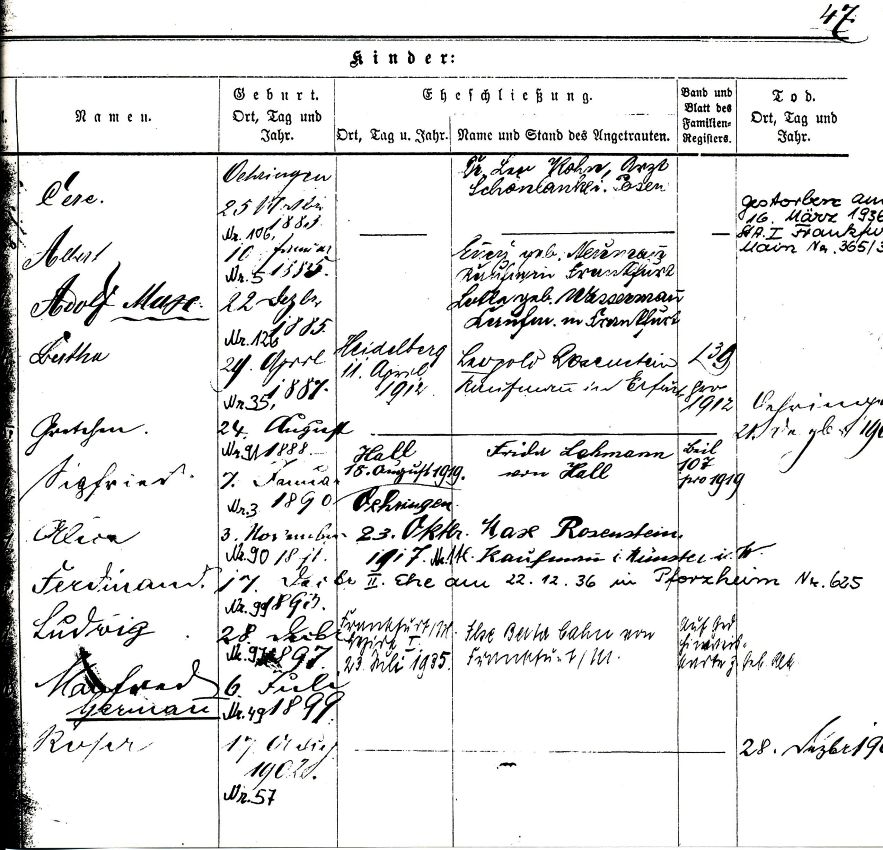 47.
Kinder:
Namen.
Geburt.
Ort, Tag und
Jahr.
Eheschließung.
Ort, Tag u. Jahr.
Name und Stand des Angetrauten.
Band und
Blatt des
Familien-
Registers.
Tod.
Ort, Tag und
Jahr.
Oehringen
25
Nr. 106, 1883
Dr. Leo Kohn, Arzt
Schönlanke i. Posen
gestorben am
16. März 1936
StA. I Frankfu
Main Nr. 365/3
Albert
10
Nr. 5 1885.
geb. Neumann
Kaufmann Frankfurt
Adolf Max.
22 Dezbr
Nr. 126 1885
Lotte geb. Wassermann
Kaufm. in Frankfurt
Bertha
29. April
Nr. 35, 1887.
Heidelberg
11. April
1912
Leopold Rosenstein
Kaufmann in Erfurt
L 39
pro
1912
Gretchen.
24. August
Nr. 91 1888
Oehringe
21.
Sigfried.
7. Janua
Nr. 3 1890
Hall
15. August 1919.
Frida Lehmann
von Hall
Beil
107
pro 1919
Alice
3. November
Nr. 90 18
Oehringen
23. Oktbr.
1917. Nr.
Max Rosenstein,
Kaufmann i. Münster i. W.
Ferdinand.
17. Dezbr
Nr. 99 1893.
II. Ehe am 22.12.36 in Pforzheim Nr. 625
Ludwig
28.
Nr. 97 1897.
Frankfurt/M.
23. Juli 1935.
Ilse Berta Cahn von
Frankfurt/M.
Manfred
Hermann
6. Juli
Nr. 49 1899
17
1902.
Nr. 57
28. Dezbr 190